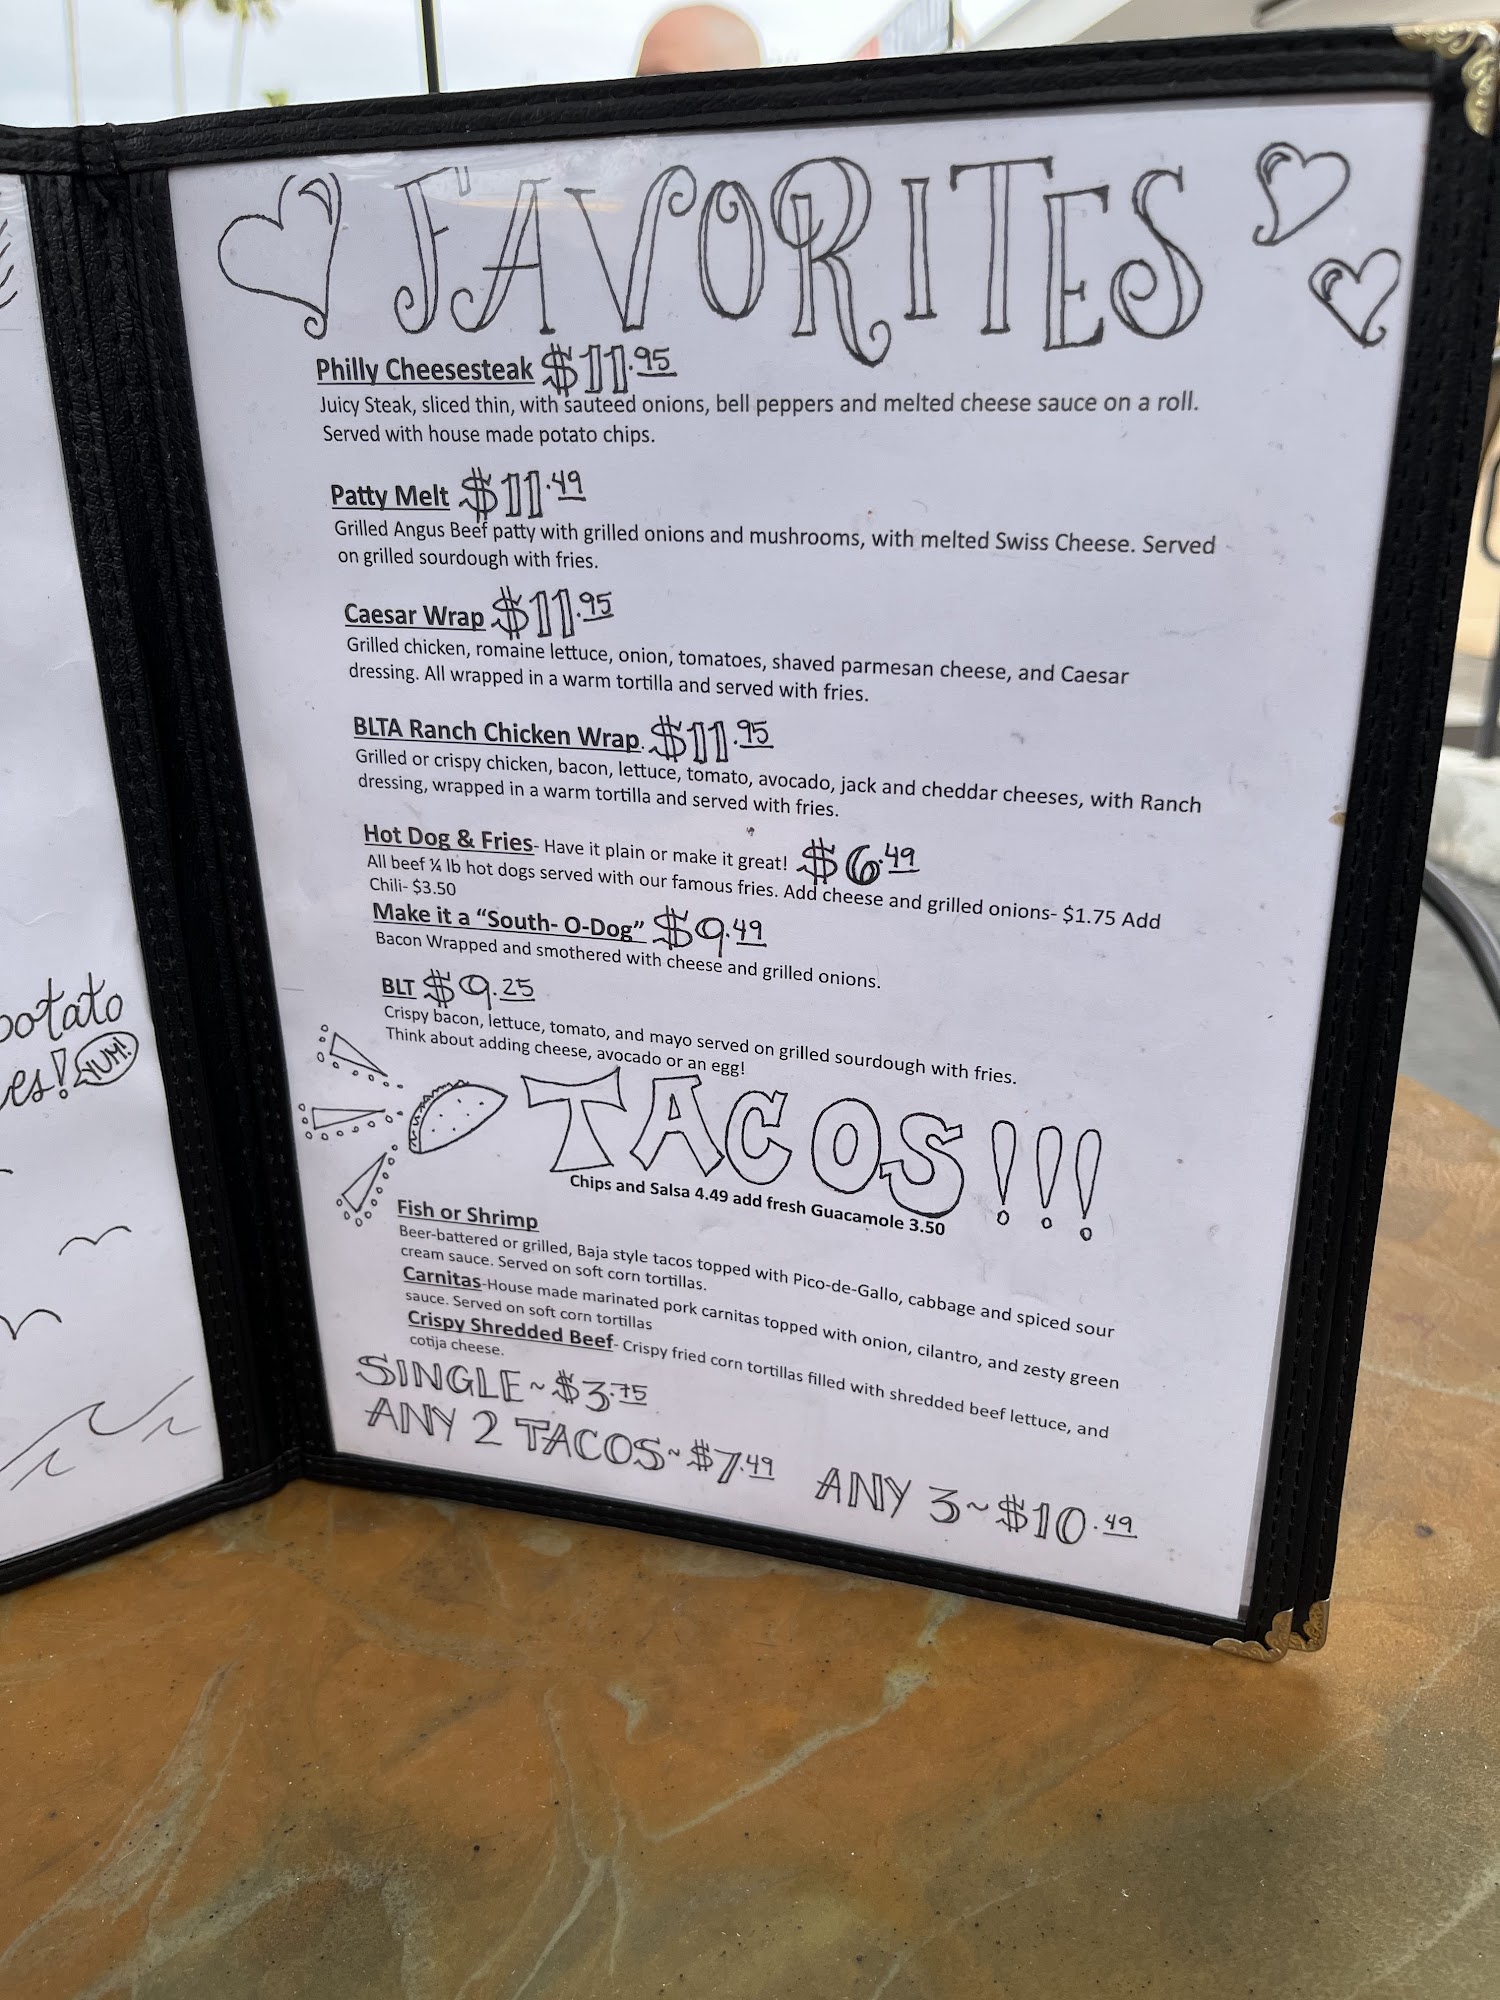 potato
YUM!
FAVORITES
Philly Cheesesteak $11.95
Juicy Steak, sliced thin, with sauteed onions, bell peppers and melted cheese sauce on a roll.
Served with house made potato chips.
Patty Melt $11.49
Grilled Angus Beef patty with grilled onions and mushrooms, with melted Swiss Cheese. Served
on grilled sourdough with fries.
Caesar Wrap $11.95
Grilled chicken, romaine lettuce, onion, tomatoes, shaved parmesan cheese, and Caesar
dressing. All wrapped in a warm tortilla and served with fries.
BLTA Ranch Chicken Wrap. $11.95
Grilled or crispy chicken, bacon, lettuce, tomato, avocado, jack and cheddar cheeses, with Ranch
dressing, wrapped in a warm tortilla and served with fries.
Hot Dog & Fries- Have it plain or make it great! $6.49
All beef ¼ lb hot dogs served with our famous fries. Add cheese and grilled onions- $1.75 Add
Chili- $3.50
Make it a “South- O-Dog” $9.49
Bacon Wrapped and smothered with cheese and grilled onions.
BLT $9.25
Crispy bacon, lettuce, tomato, and mayo served on grilled sourdough with fries.
Think about adding cheese, avocado or an egg!
TACOS!!!
Chips and Salsa 4.49 add fresh Guacamole 3.50
Fish or Shrimp
Beer-battered or grilled, Baja style tacos topped with Pico-de-Gallo, cabbage and spiced sour
cream sauce. Served on soft corn tortillas.
Carnitas-House made marinated pork carnitas topped with onion, cilantro, and zesty green
sauce. Served on soft corn tortillas
Crispy Shredded Beef- Crispy fried corn tortillas filled with shredded beef lettuce, and
cotija cheese.
SINGLE~$3.75
ANY 2 TACOS~$7.49 ANY 3~$10.49